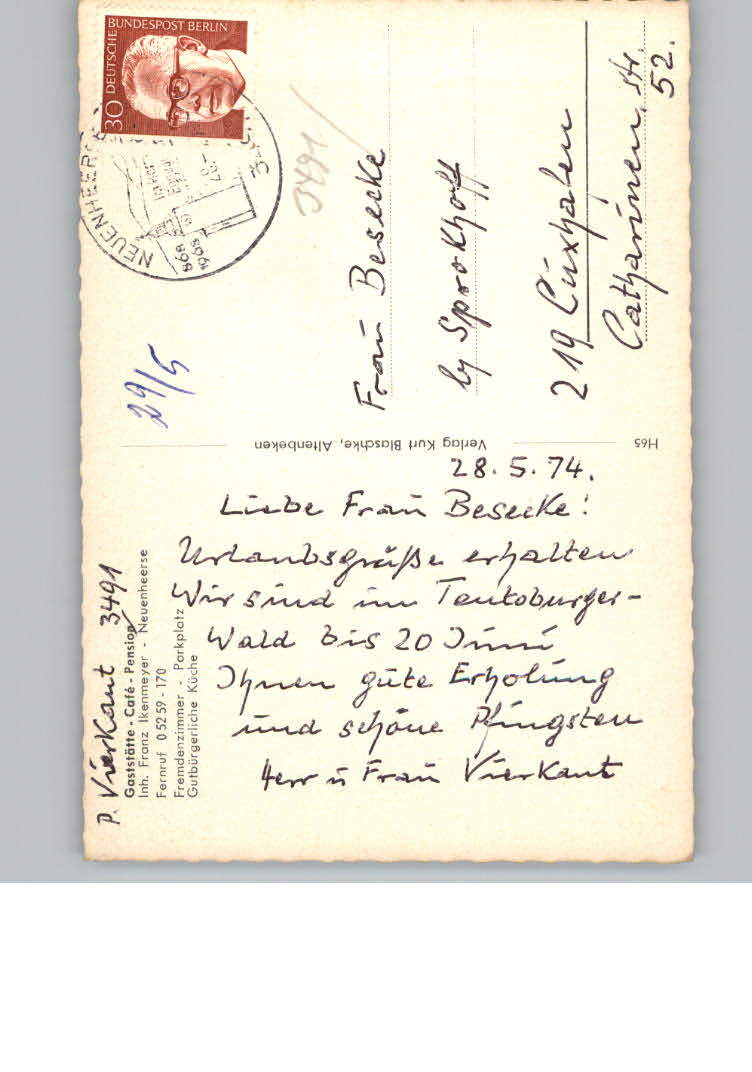 P. Vierkant 3491
Gaststätte - Café - Pension
Inh. Franz Ikenmeyer - Neuenheerse
Fernruf 0 52 59 - 170
Fremdenzimmer - Parkplatz
Gutbürgerliche Küche
28.5.74.
Liebe Frau Besecke!
Urlaubsgrüße erhalten
Wir sind im Teutoburger-
Wald bis 20 Juni
Ihnen gute Erholung
und schöne Pfingsten
Herr u Frau Vierkant
H65
Verlag Kurt Blaschke, Altenbeken
29/5
3491/
DEUTSCHE BUNDESPOST BERLIN
30
NEUENHEERSE
868
1968
Frau Besecke
by Sprokhoff
219 Cuxhafen
Catharinen str.
52.